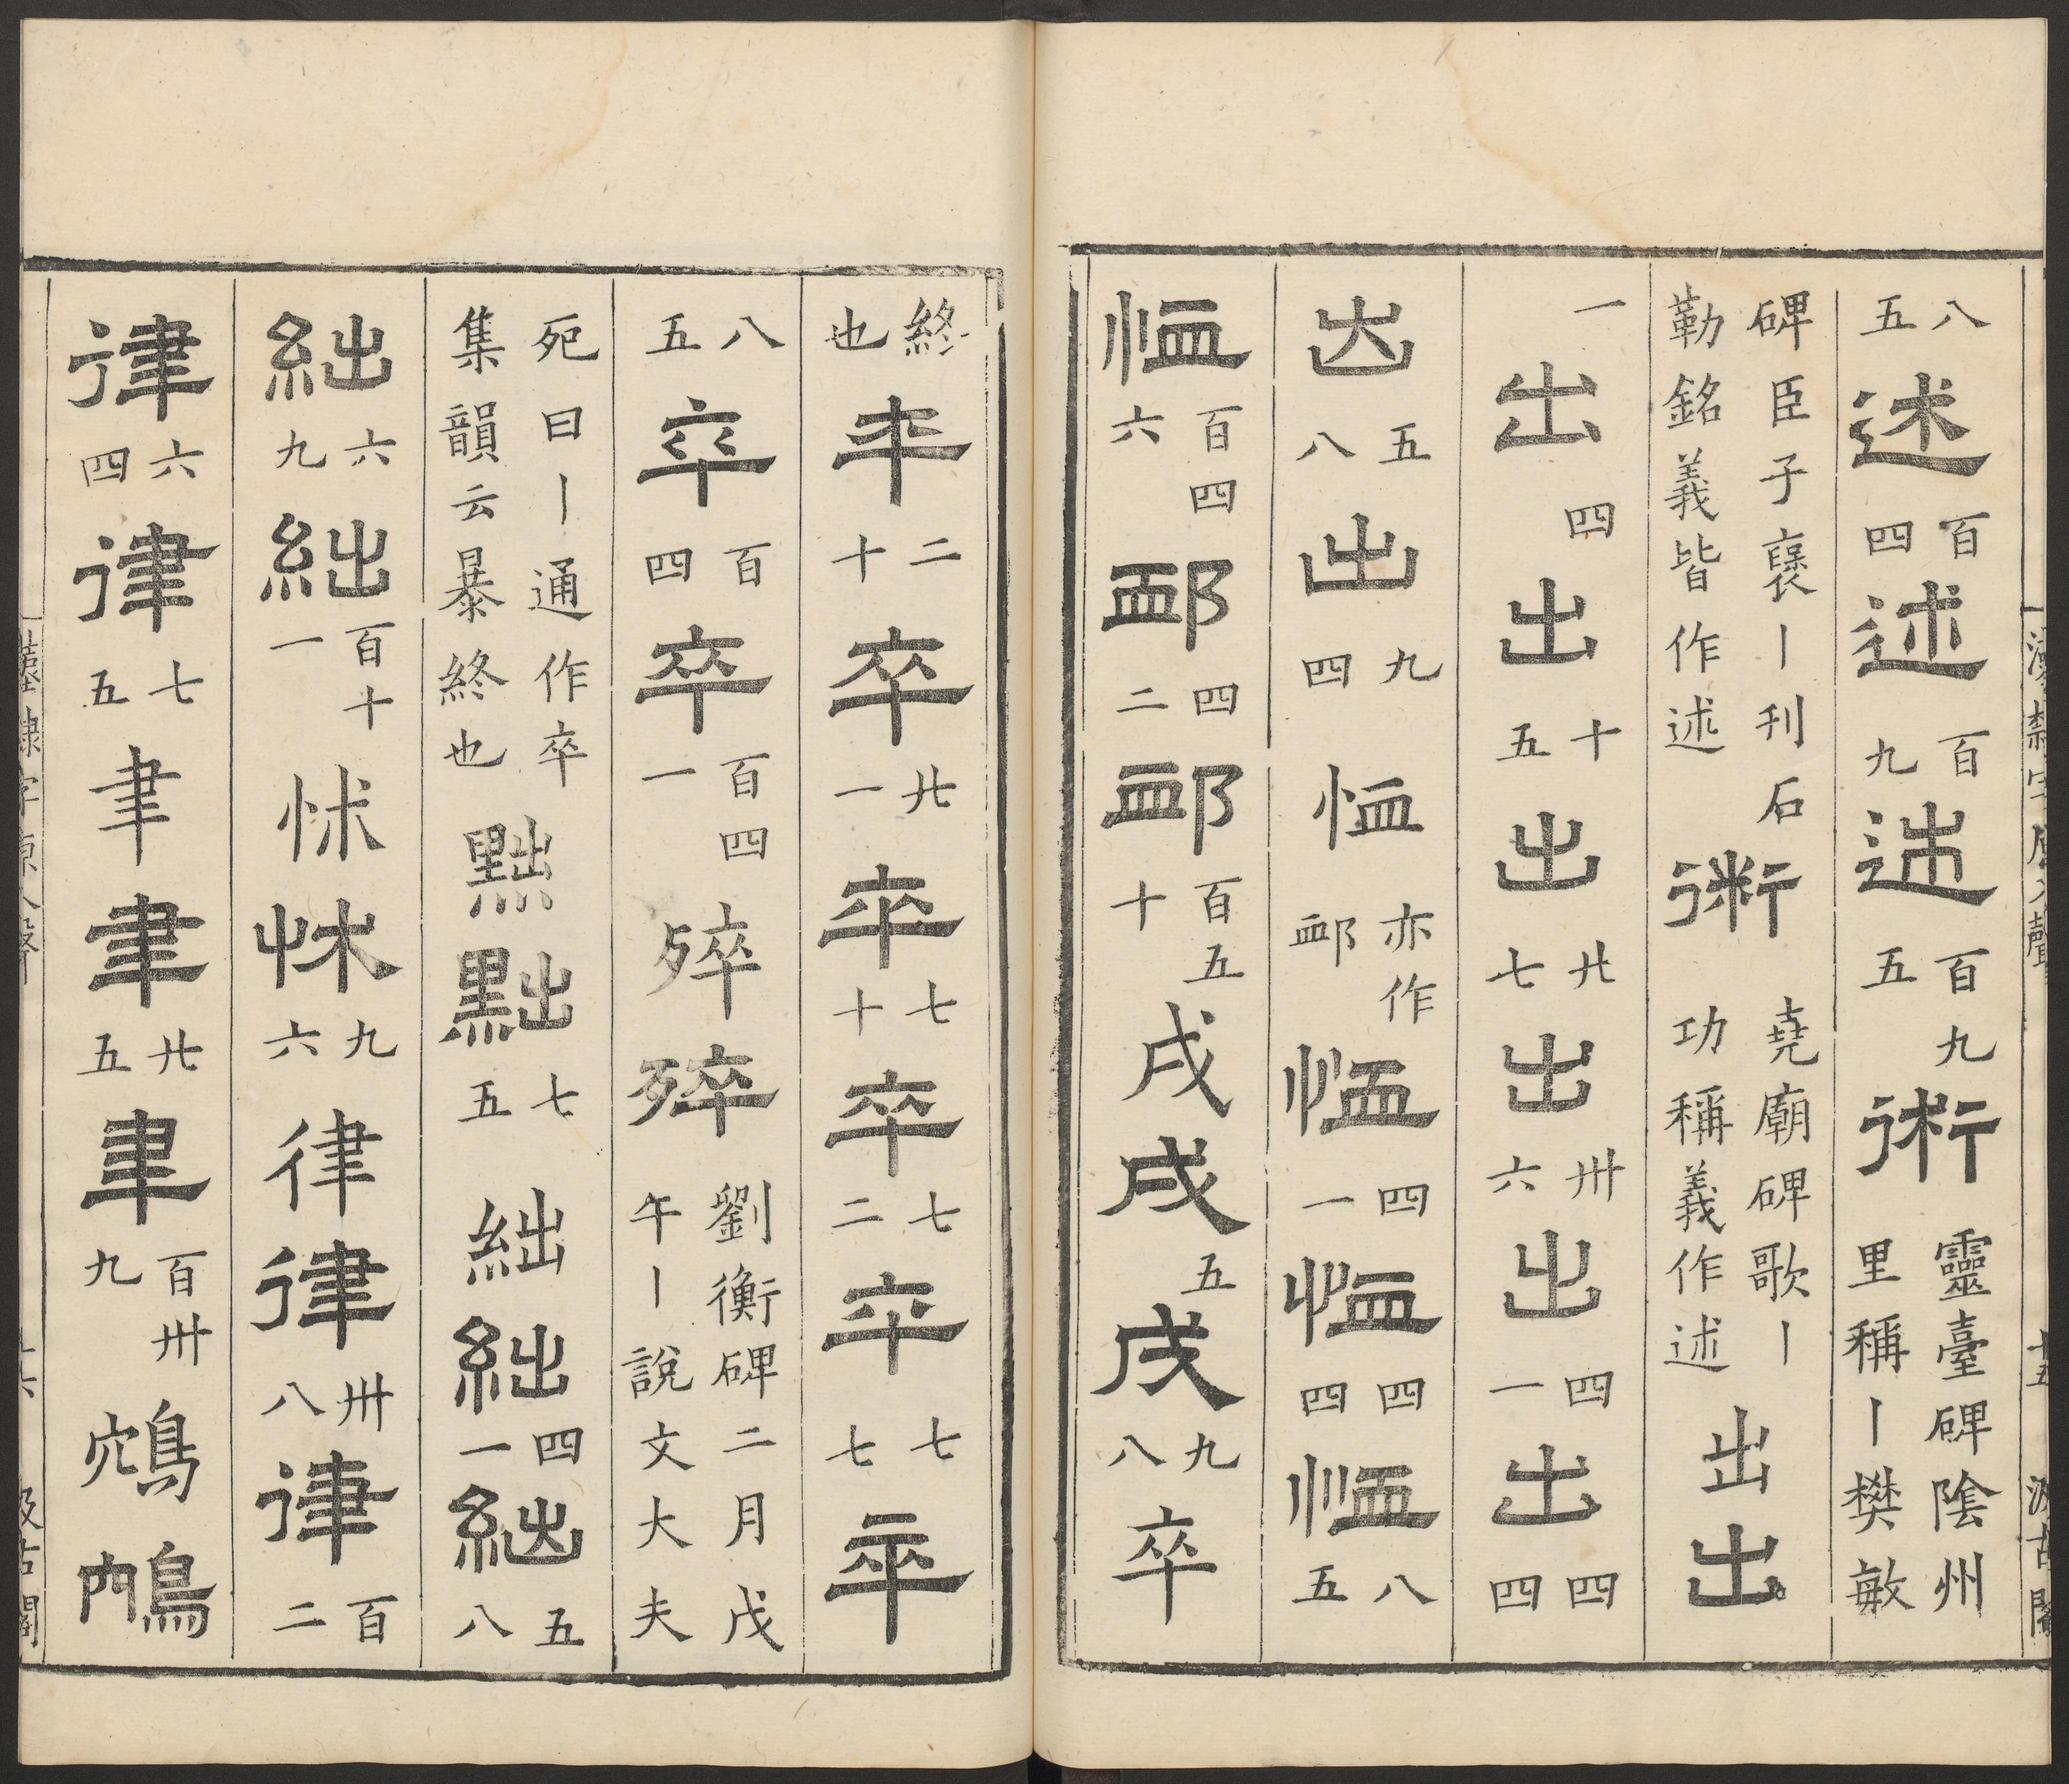 八五述百四述百九述百九五術靈臺碑陰州里稱丨樊敏
碑臣子襃丨刊石勒銘義皆作述術堯廟碑歌丨功稱義作述出出
一出四出十五出廿七出卅六出四一出四四
出五八出九四恤亦作卹恤四一恤四四恤八五
恤百四六卹四二卹百五十戌戌五戌九八卒
終也卒二十卒廿一卒七十卒七二卒七七卒
八五卒百四卒百四一殚殚劉衡碑二月戊午丨說文大夫
死曰丨通作卒集韻云暴終也黜黜七五絀絀四一絀五八
絀六九絀百十一怵怵九六律律卅八律百二
律六四律七五聿聿廿五聿百卅九鴥鴥
漢隸字原入聲 十五 汲古閣
漢隸字原入聲 十六 汲古閣